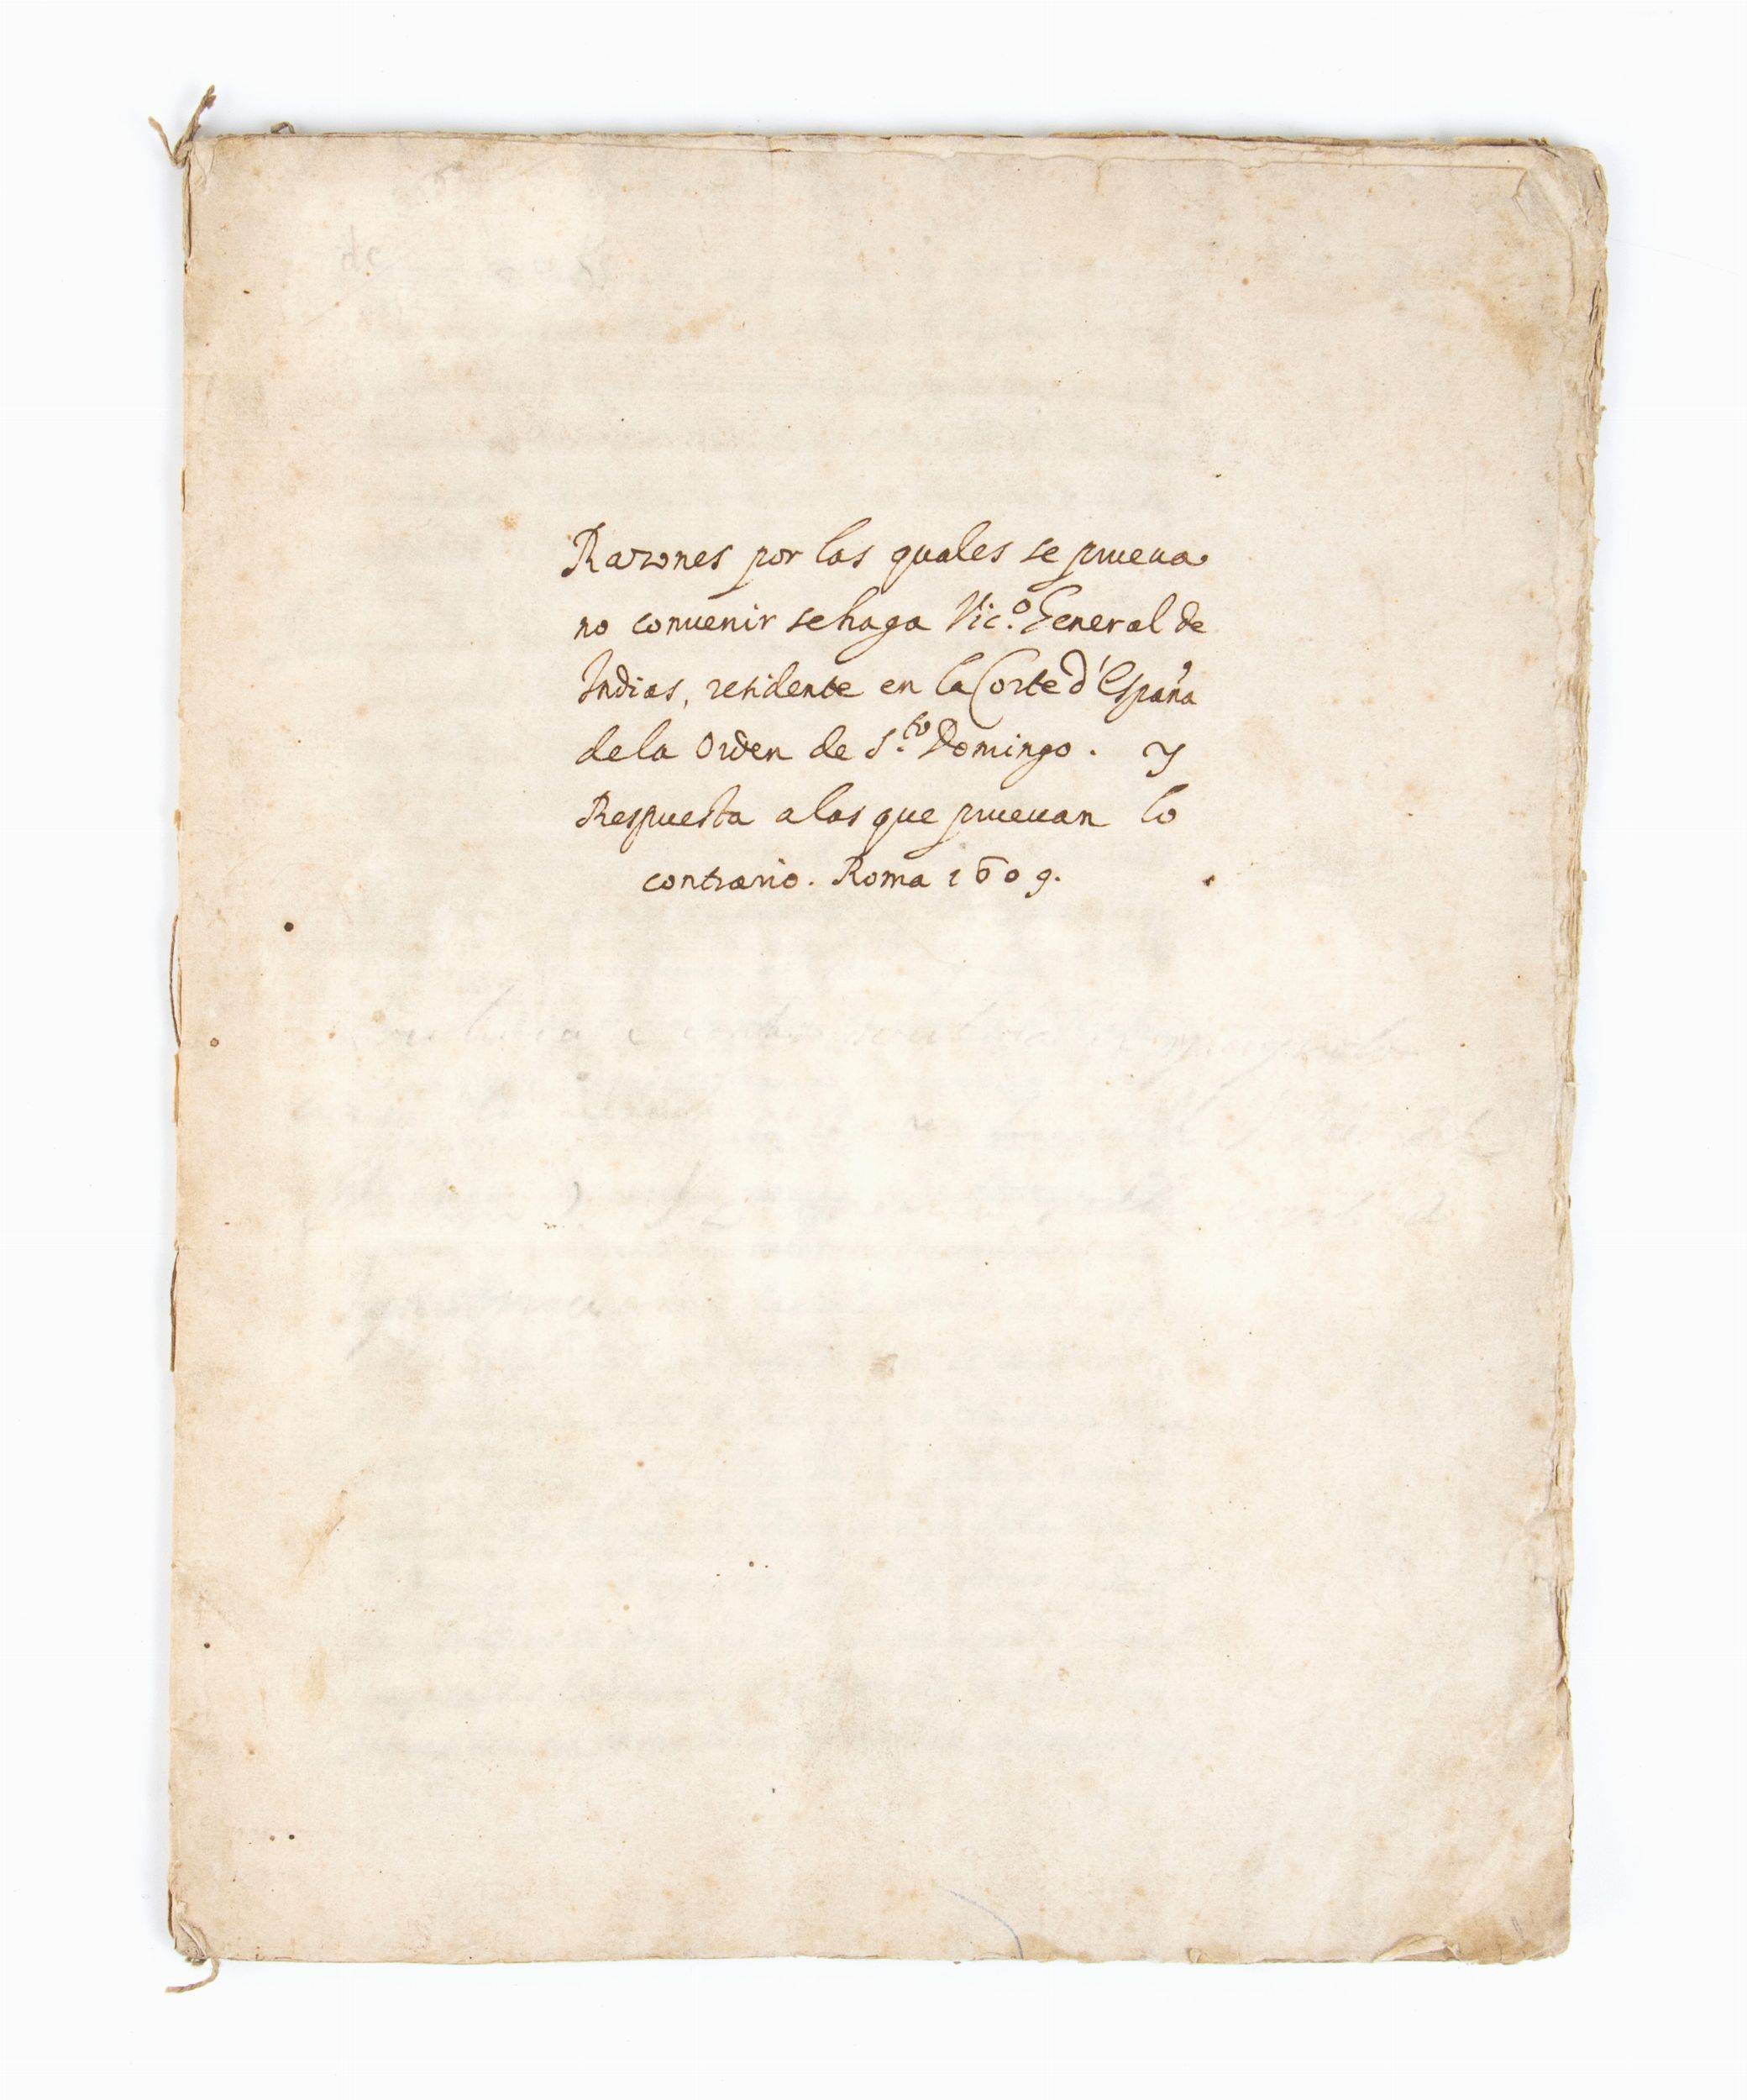 Razones por las quales se prueua
no conuenir se haga Vic.º General de
Indias, residente en la Corte d'España
de la Orden de S.to Domingo. y
Respuesta a las que prueuan lo
contrario. Roma 1609.